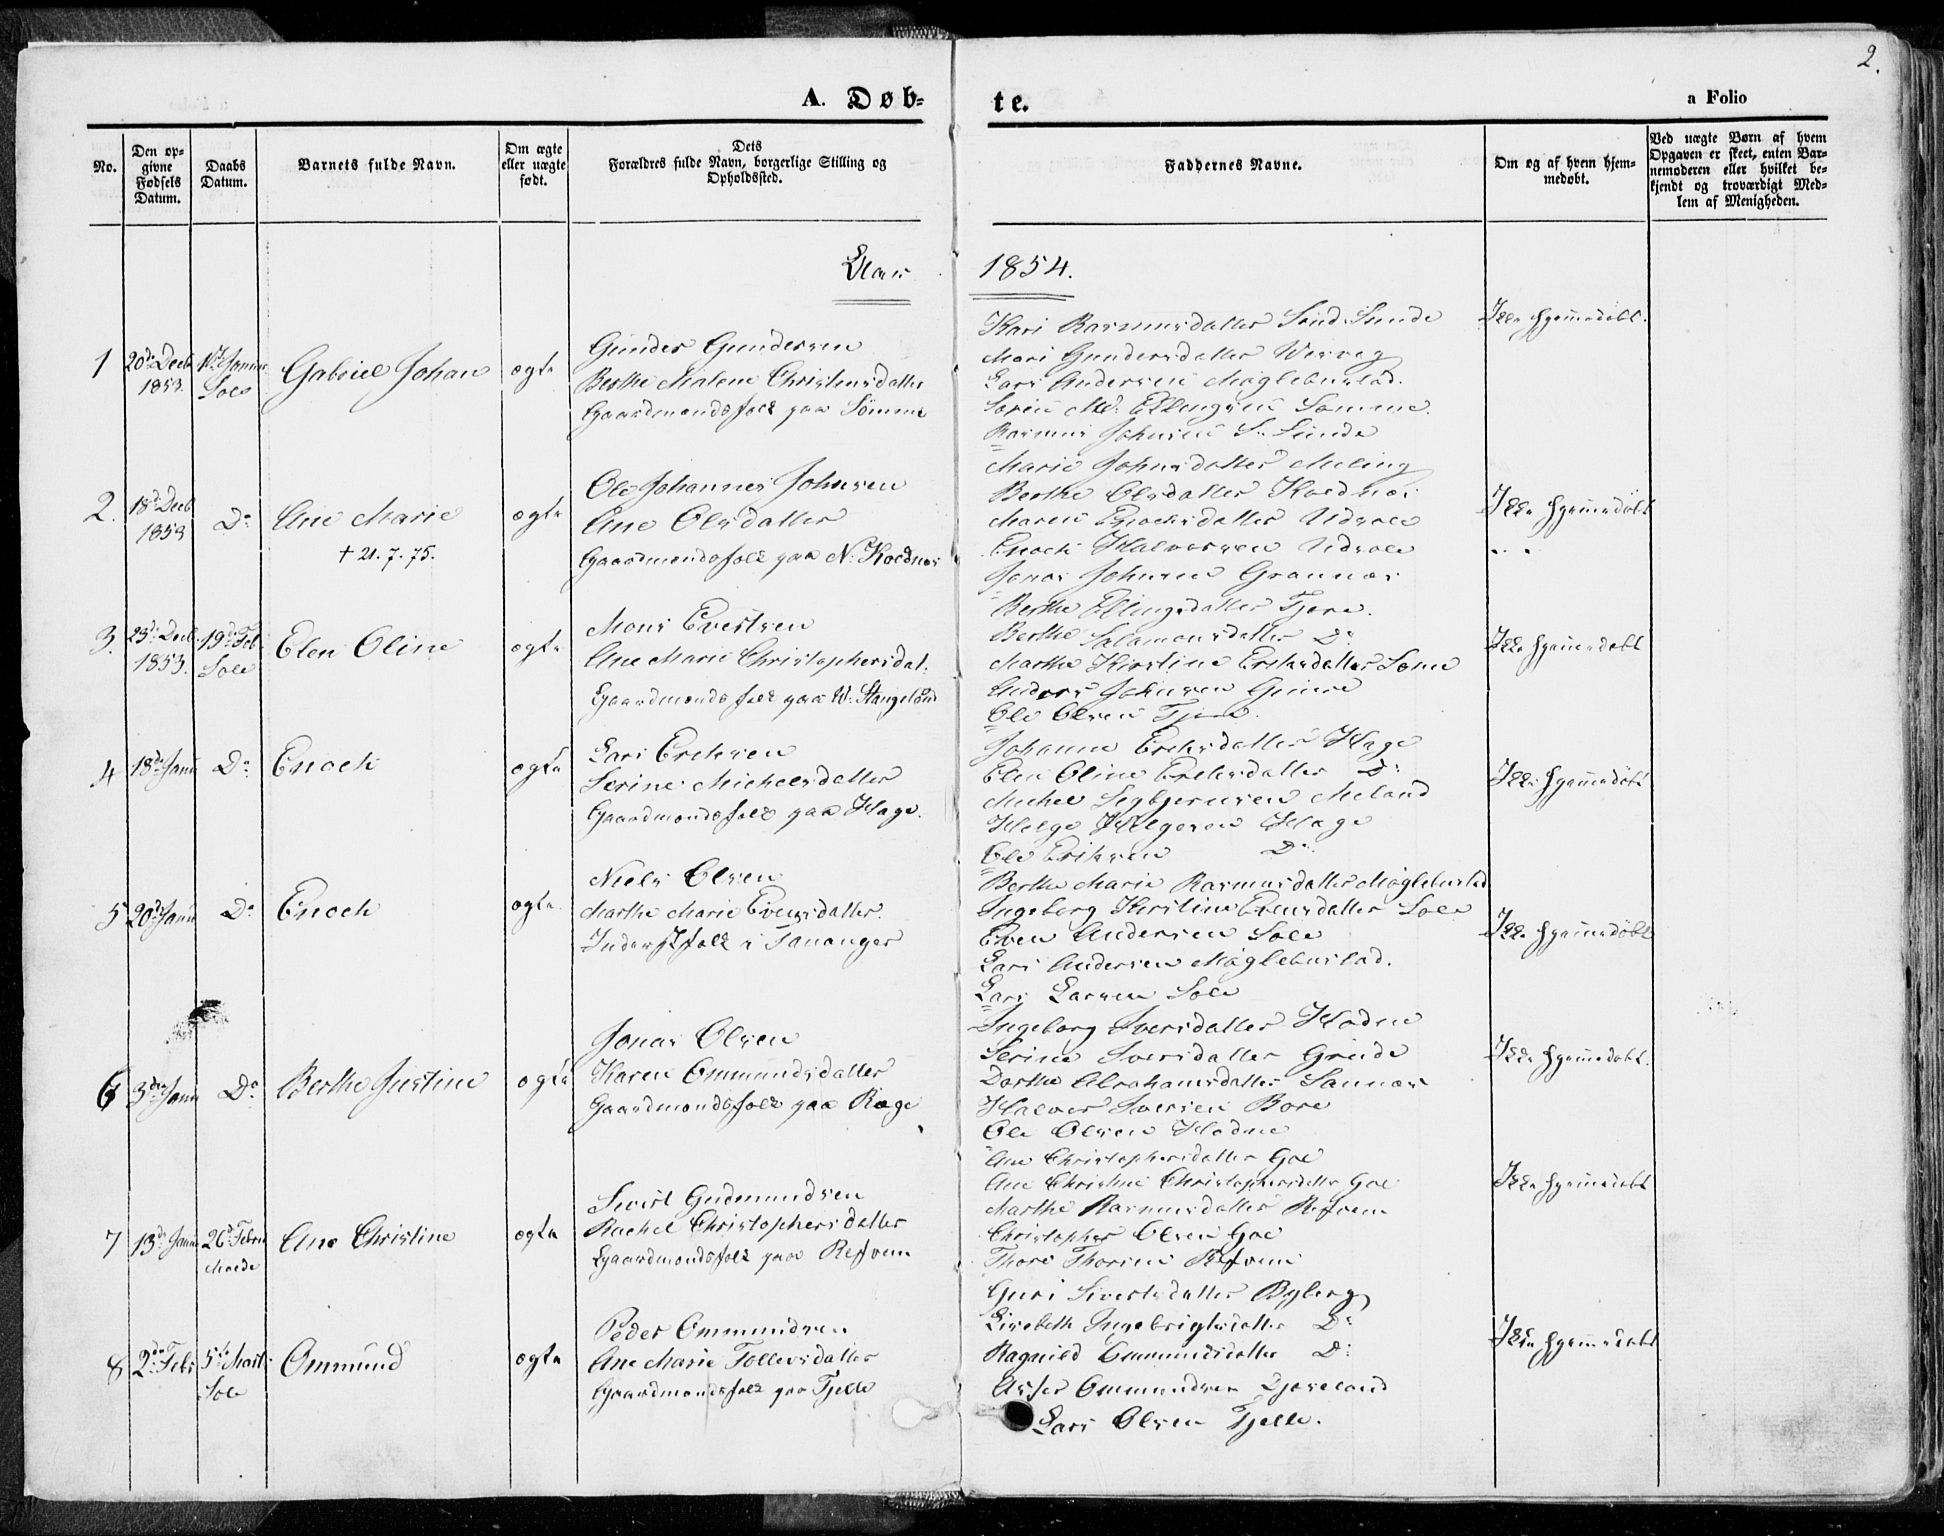 2.
A. Døb-
te.
a Folio
No.
Den op-
givne
Fødsels
Datum.
Daabs
Datum.
Barnets fulde Navn.
Om ægte
eller uægte
født.
Dets
Forældres fulde Navn, borgerlige Stilling og
Opholdssted.
Faddernes Navne.
Om og af hvem hjem-
medøbt.
Ved uægte Børn af hvem
Opgaven er skeet, enten Bar-
nemoderen eller hvilket be-
kjendt og troværdigt Med-
lem af Menigheden.
Aar
1854.
1
20de Decb
1853.
1ste Janua
Sole
Gabriel Johan
ægte
Gunder Gundersen
Berthe Malene Christensdatter
Gaardmandsfolk paa Sömme
Kari Rasmusdatter Sönd. Sunde
Mari Gundersdatter
Lars Andersen Mögleburstad.
Sören Md. Ellingsen Somme.
Rasmus Johnsen S. Sunde
Ikke hjemmedöbt.
2.
18de Decb
1853
Do
Ane Marie
+ 21. 7. 75.
ægte
Ole Johannes Johnsen
Ane Olsdatter
Gaardmandsfolk paa N. Koldnes
Marie Johnsdatter Meling
Berthe Olsdatter Koldnes
Maren Enochsdatter Udsole
Enoch Halvorsen Udsole
Jonas Johnsen Grannæs
Ikke hjemmedöbt
3.
23de Decb.
1853.
19de Feb
Sole
Elen Oline
ægte
Mons Evertsen
Ane Marie Christophersdat.
Gaardmandsfolk paa W. Stangeland
Berthe Ellingsdatter Tjora.
Berthe Salamonsdatter Do
Marthe Kirstine Eriksdatter Some
Anders Johnsen Gimre
Ole Olsen Tjora.
Ikke hjemmedöbt
4
18de Janu
Do
Enoch
ægte
Lars Eriksen
Serine Michelsdatter
Gaardmandsfolk paa Hage.
Johanne Eriksdatter Hage
Elen Oline Eriksdatter Do
Michel Segbjörnsen Meland
Helge Helgesen Hage
Ole Eriksen Do
Ikke hjemmedöbt
5
20de Janu
Do
Enoch
ægte.
Niels Olsen
Marthe Marie Evensdatter.
Inderstfolk i Tananger
Berthe Marie Rasmusdatter Mögleburstad
Ingeborg Kirstine Evensdatter Sole
Even Andersen Sole
Lars Andersen Mögleburstad.
Lars Larsen Sole
Ikke hjemmedöbt
6
3die Janu
Do
Berthe Justine
ægte
Jonas Olsen
Karen Ommundsdatter
Gaardmandsfolk paa Ræge
Ingeborg Iversdatter Hodne
Serine Iversdatter Grude
Dorthe Abrahamsdatter Sannæs
Halvor Iversen Bore
Ole Olsen Hodne
Ikke hjemmedöbt.
7
13de Janu
26de Febru
Malde
Ane Christine
ægte
Sivert Gudmundsen
Rachel Christophersdatter
Gaardmandsfolk paa Refsnem
Ane Christophersdatter Goe
Ane Christine Christophersdatter Goe
Marthe Rasmusdatter Refsnem
Christopher Olsen Goe
Thore Thorsen Refsnem
Ikke hjemmedöbt
8
2den Febr
5te Marts
Sole
Ommund
ægte
Peder Ommundsen
Ane Marie Tollevsdatter
Gaardmandsfolk paa Tjelle
Guri Sivertsdatter Byberg
Lisebeth Ingebrigtsdatter Do
Ragnild Ommundsdatter Do
Asser Ommundsen
Lars Olsen Tjelle.
Ikke hjemmedöbt